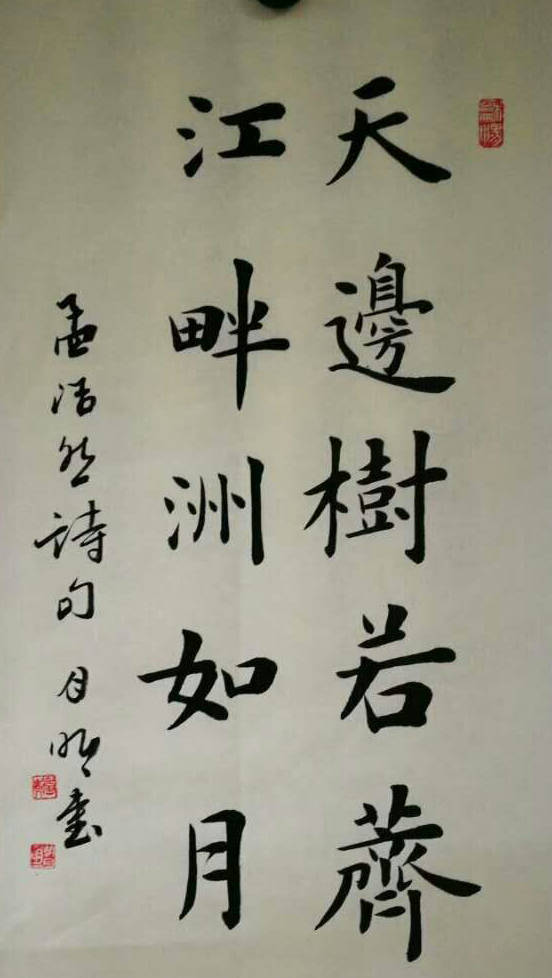 天邊樹若薺
江畔洲如月
孟浩然詩句 月明書